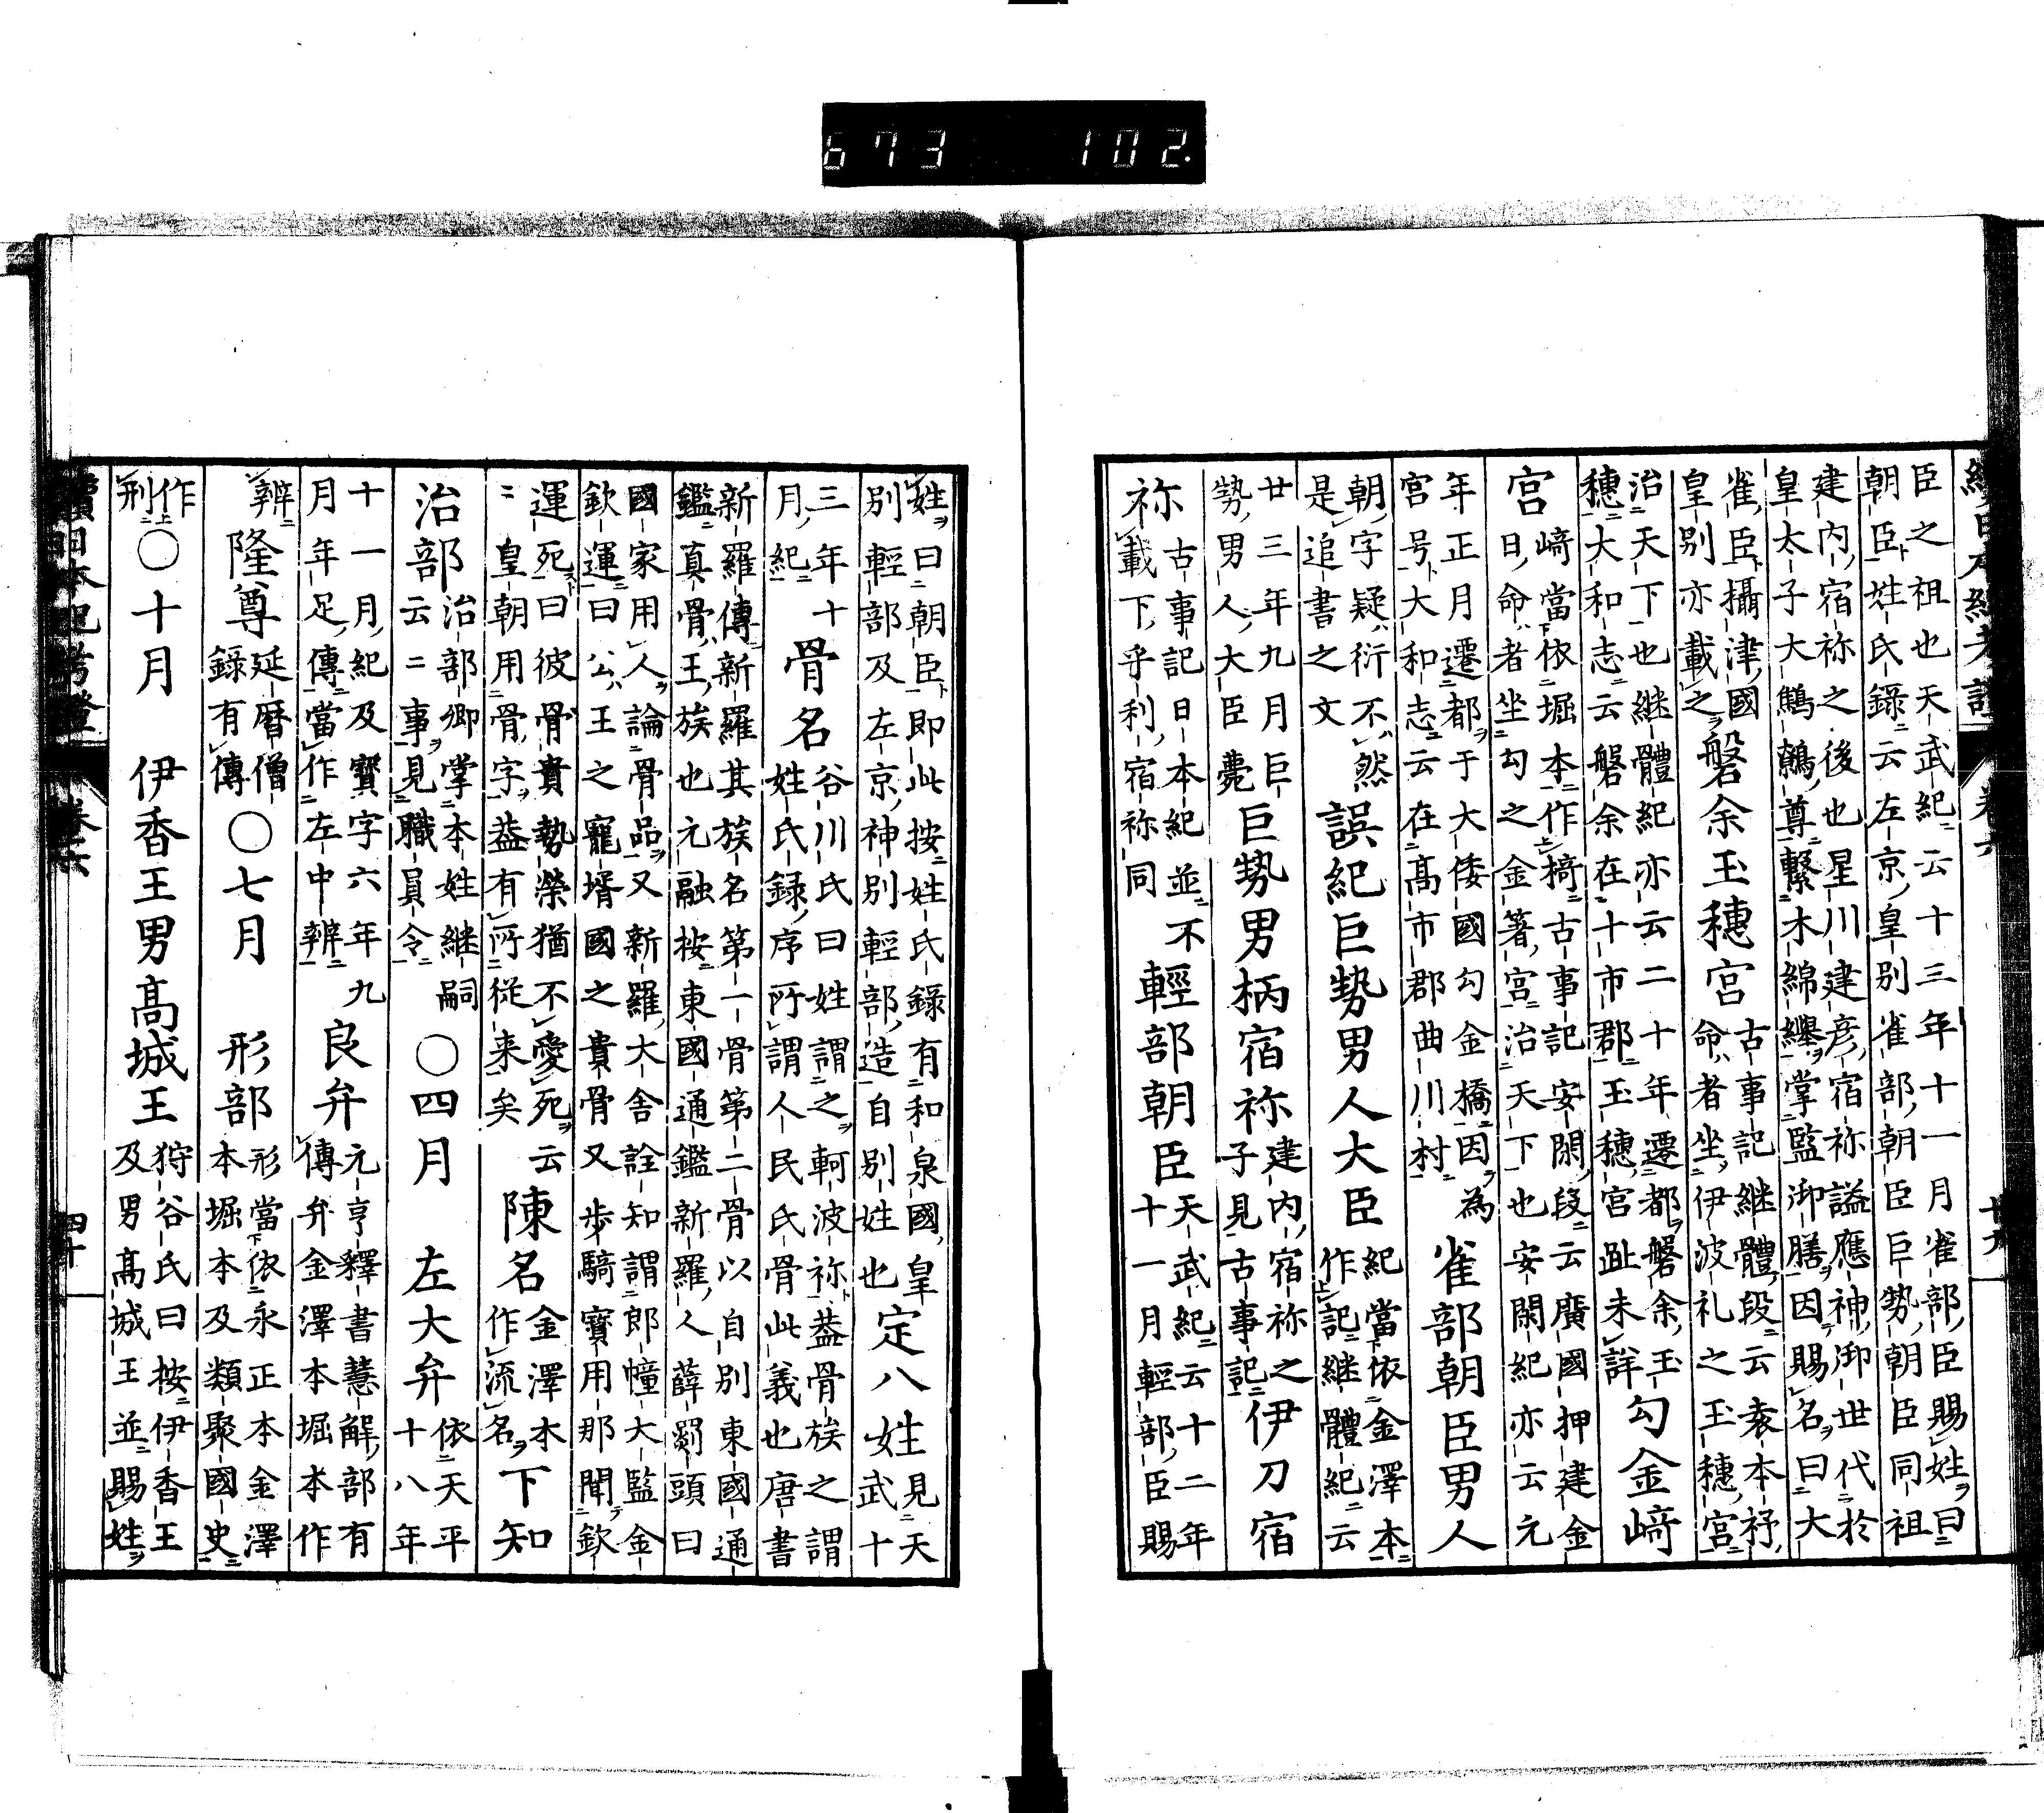 續日本紀考證 卷六 廿九
臣之祖也天武紀云十三年十一月雀部臣賜姓曰
朝臣姓氏錄云左京皇別雀部朝臣巨勢朝臣同祖
建內宿祢之後也星川建彥宿祢謚應神御世代於
皇太子大鷦鷯尊繫木綿襷掌監御膳因賜名曰大
雀臣攝津國
皇別亦載之
磐余玉穗宮
古事記継體段云袁本杼
命者坐伊波礼之玉穗宮
治天下也継體紀亦云二十年遷都磐余玉
穗大和志云磐余在十市郡玉穗宮趾未詳
勾金﨑
宮
﨑當依堀本作椅古事記安閑段云廣國押建金
日命者坐勾之金箸宮治天下也安閑紀亦云元
年正月遷都于大倭國勾金橋因為
宮号大和志云在髙市郡曲川村
雀部朝臣男人
朝字疑衍不然
是追書之文
誤紀巨勢男人大臣
紀當依金澤本
作記継體紀云
廿三年九月巨
勢男人大臣薨
巨勢男柄宿祢
建內宿祢之
子見古事記
伊刀宿
祢
古事記日本紀並不
載下乎利宿祢同
輕部朝臣
天武紀云十二年
十一月輕部臣賜
姓曰朝臣即此按姓氏錄有和泉國皇
別輕部及左京神別輕部造自別姓也
定八姓
見天
武十
三年十
月紀
骨名
谷川氏曰姓謂之軻波祢葢骨族之謂
姓氏錄序所謂人民氏骨此義也唐書
新羅傳新羅其族名第一骨第二骨以自別東國通
鑑真骨王族也元融按東國通鑑新羅人薛罽頭曰
國家用人論骨品又新羅大舎詮知謂郎幢大監金
欽運曰公王之寵壻國之貴骨又步騎寶用那聞欽
運死曰彼骨貴勢榮猶不愛死云
云皇朝用骨字葢有所從来矣
陳名
金澤本
作流名
下知
治部
治部卿掌本姓継嗣
云云事見職員令
〇四月 左大弁
依天平
十八年
十一月紀及寶字六年九
月年足傳當作左中辨
良弁
元亨釋書慧解部有
傳弁金澤本堀本作
辨
隆尊
延暦僧
錄有傳
〇七月 形部
形當依永正本金澤
本堀本及類聚國史
作
刑
〇十月 伊香王男髙城王
狩谷氏曰按伊香王
及男髙城王並賜姓
續日本紀考證 卷六 四十